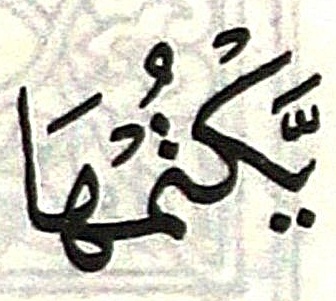 يَّكْتُمْهَا